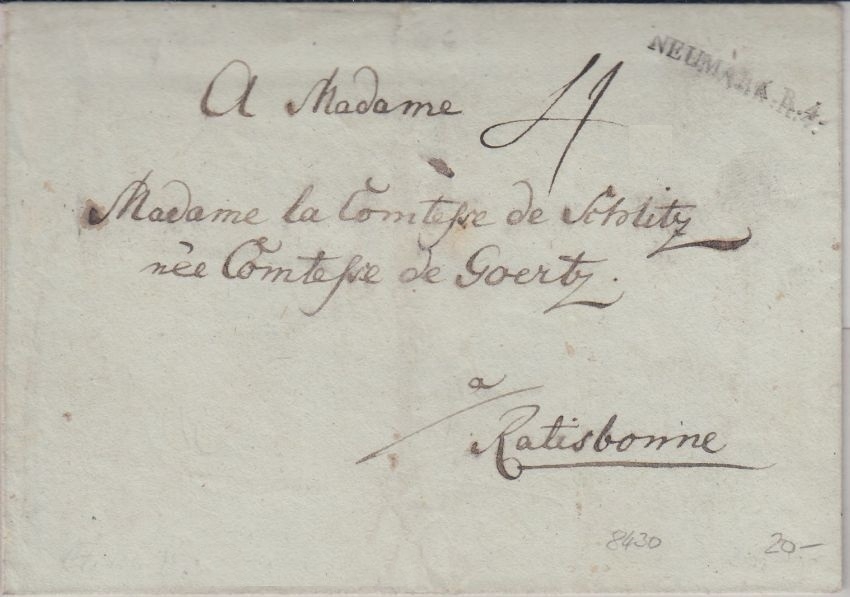 NEUMARK.R.4.
A Madame
4
Madame la Comtesse de Schlitz
née Comtesse de Goertz.
a
Ratisbonne
8430 20—